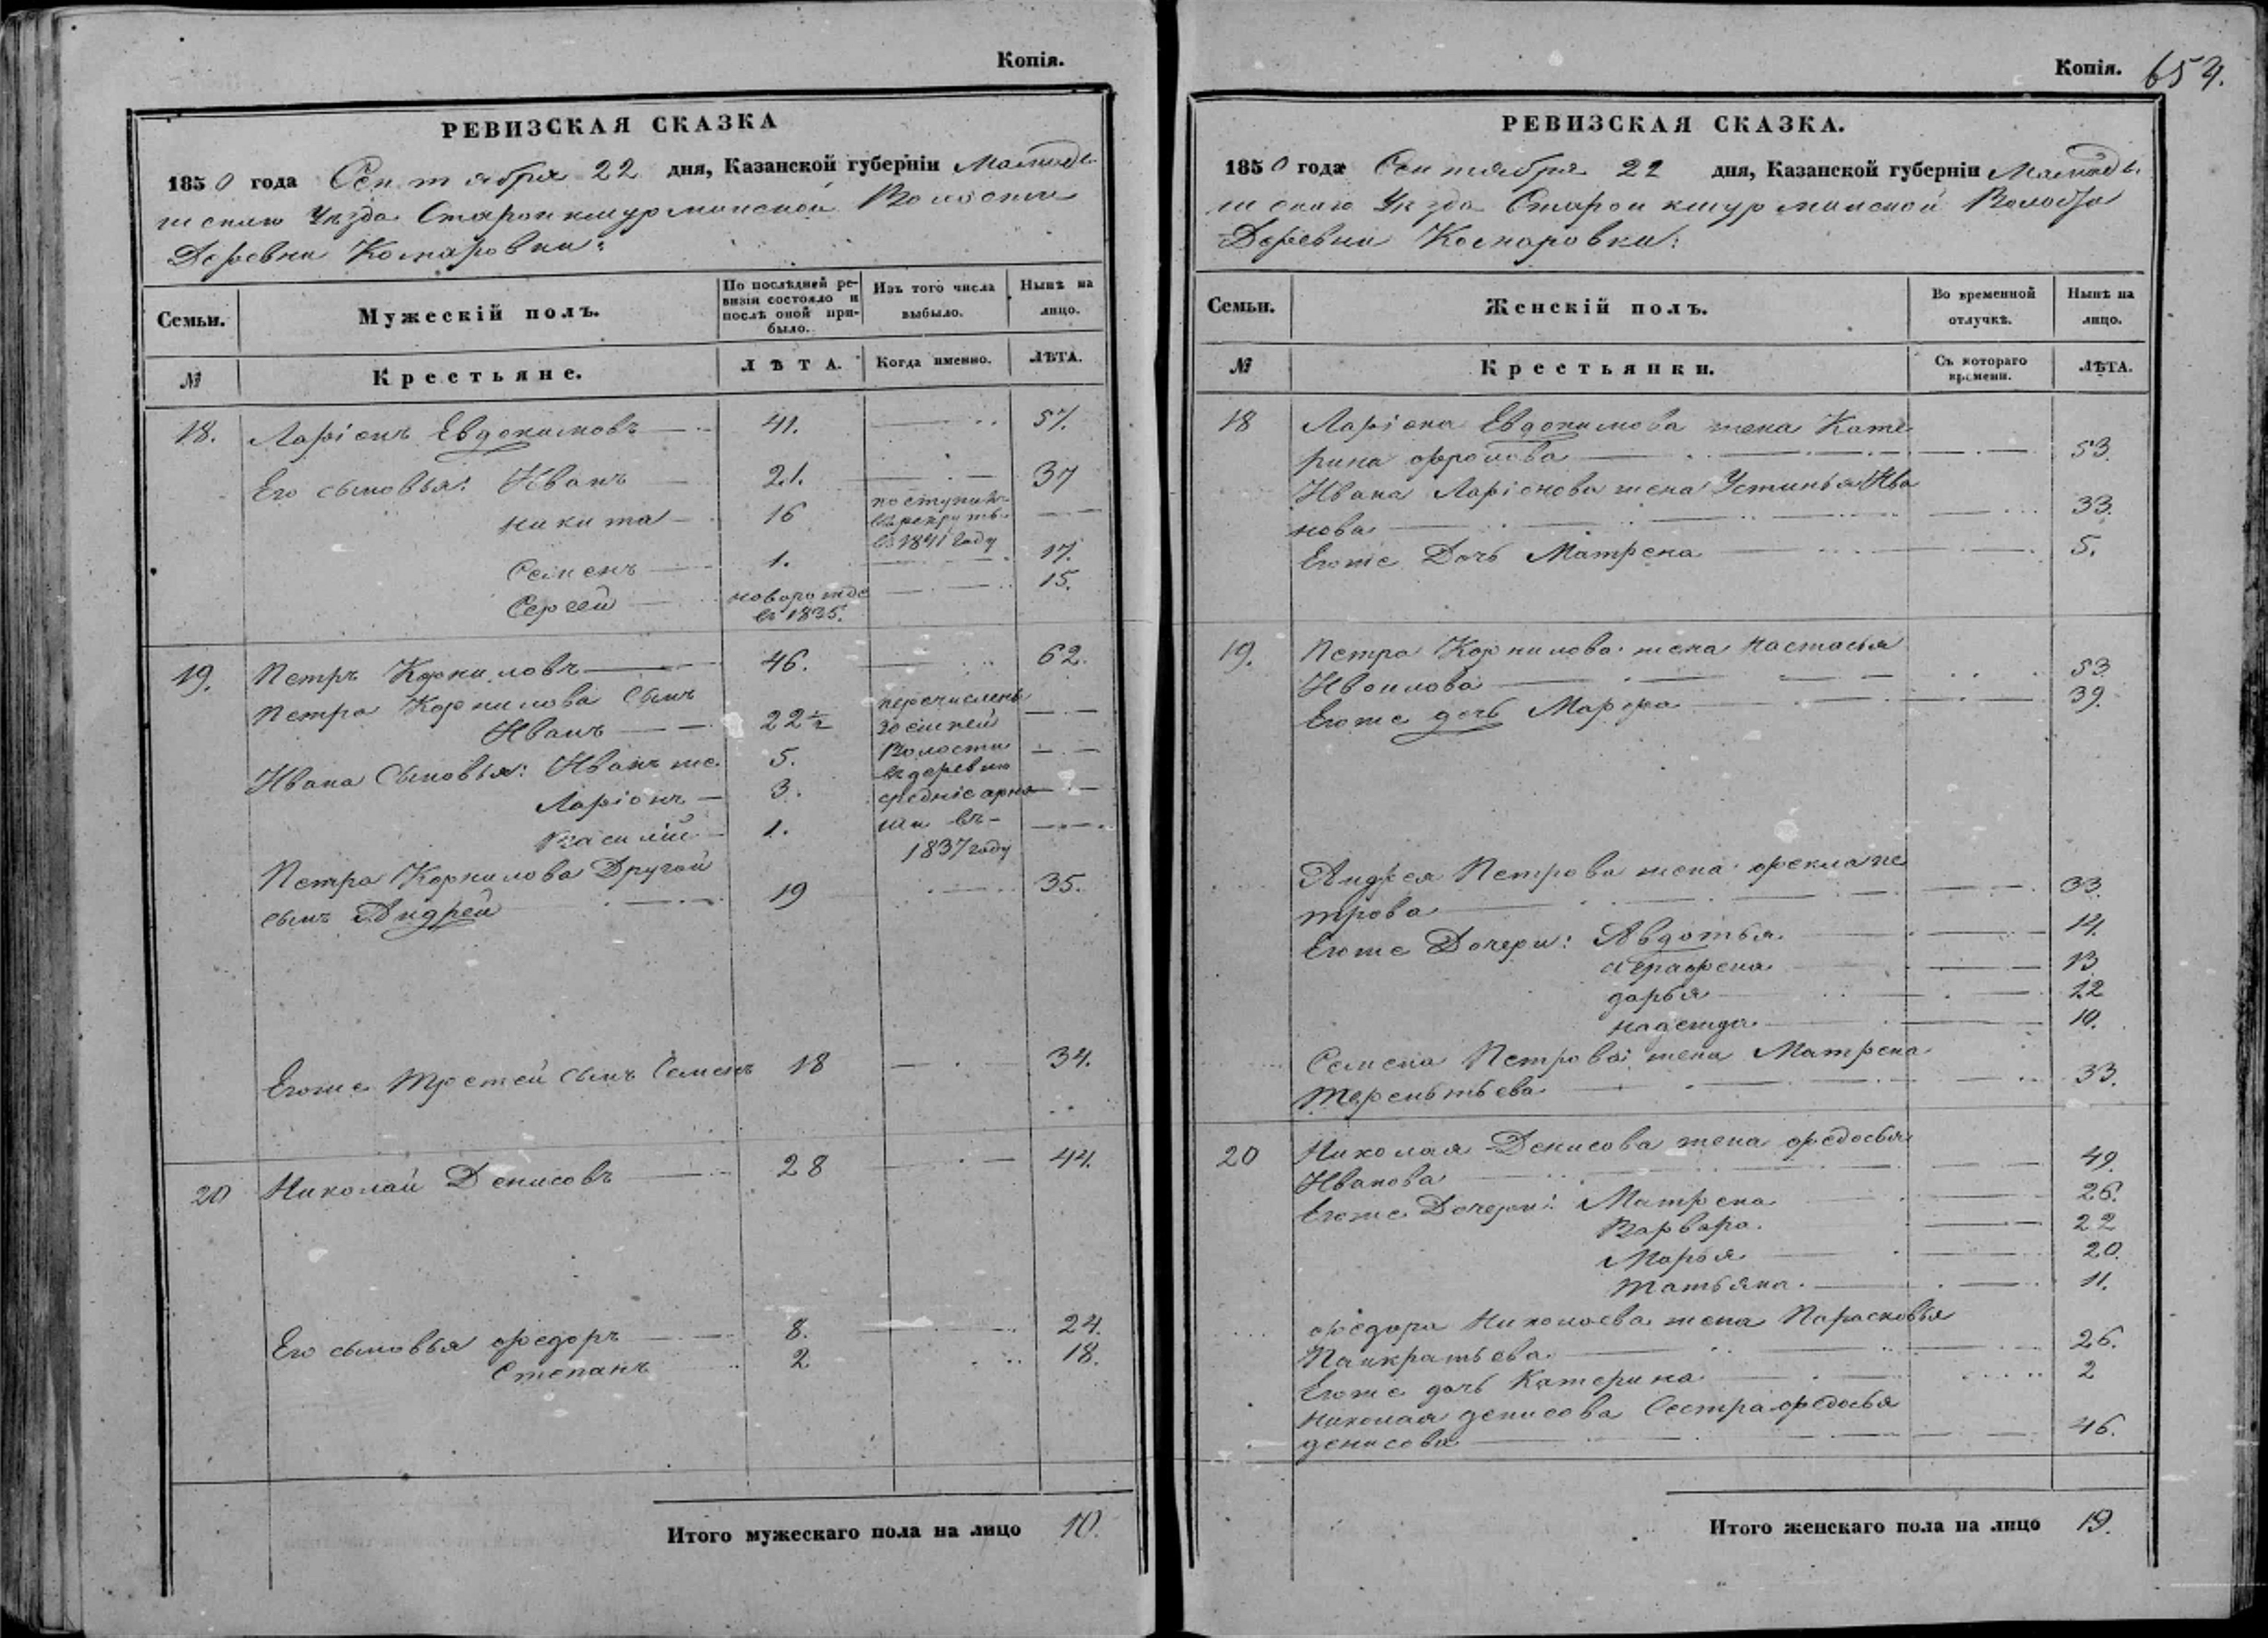 Копія.
РЕВИЗСКАЯ СКАЗКА
1850 года Сентября 22 дня, Казанской губерніи Мамады
шскаго Уѣзда Старокшурманской Волости
Деревни Комаровки:
Семьи. Мужескій полъ. По послѣдней ре-
визіи состояло и
послѣ оной при-
было. Изъ того числа
выбыло. Нынѣ на
лицо.
№ Крестьяне. ЛѢТА. Когда именно. ЛѢТА.
18. Ларіонъ Евдокимовъ 41. 57.
Его сыновья: Иванъ 21. 37
никита 16 поступилъ
въ рекруты
въ 1841 году
Семенъ 1. 17.
Сергей новорожде
въ 1835. 15.
19. Петръ Корниловъ 46. 62.
Петра Корнилова сынъ
Иванъ 22½ перечислены
Ивана сыновья: Иванъ же 5.
Ларіонъ 3.
Василій 1.
зосимей
Волости
въ деревню
средніе арня
ши въ
1837 году
Петра Корнилова Другой
сынъ Андрей 19 35.
Егоже Третей сынъ Семенъ 18 34.
20 Николай Денисовъ 28 44.
Его сыновья федоръ 8. 24.
Степанъ 2 18.
Итого мужескаго пола на лицо 10.
Копія. 654.
РЕВИЗСКАЯ СКАЗКА.
1850 года Сентября 22 дня, Казанской губерніи Мамады
шскаго Уѣзда Старокшурманской Волости
Деревни Комаровки:
Семьи. Женскій полъ. Во временной
отлучкѣ. Нынѣ на
лицо.
№ Крестьянки. Съ котораго
времени. ЛѢТА.
18 Ларіона Евдокимова жена Кате
рина фролова 53.
Ивана Ларіонова жена Устинья Ива
нова 33.
Егоже Дочь Матрена 5.
19. Петра Корнилова жена настасья
Ивоилова 53.
Егоже дочь Марфа 39.
Андрея Петрова жена фекла пе
трова 33.
Егоже Дочери: Авдотья 14.
аграфена 13
дарья 12
надежда 10.
Семена Петрова жена Матрена
терентьева 33.
20 Николая Денисова жена федосья
Иванова 49.
Егоже Дочери: Матрена 26.
Варвара. 22
Марья 20.
татьяна. 11.
федора Николаева жена Парасковья
Панкратьева. 26.
Егоже дочь Катерина 2
николая денисова Сестра федосья
денисова 46.
Итого женскаго пола на лицо 19.